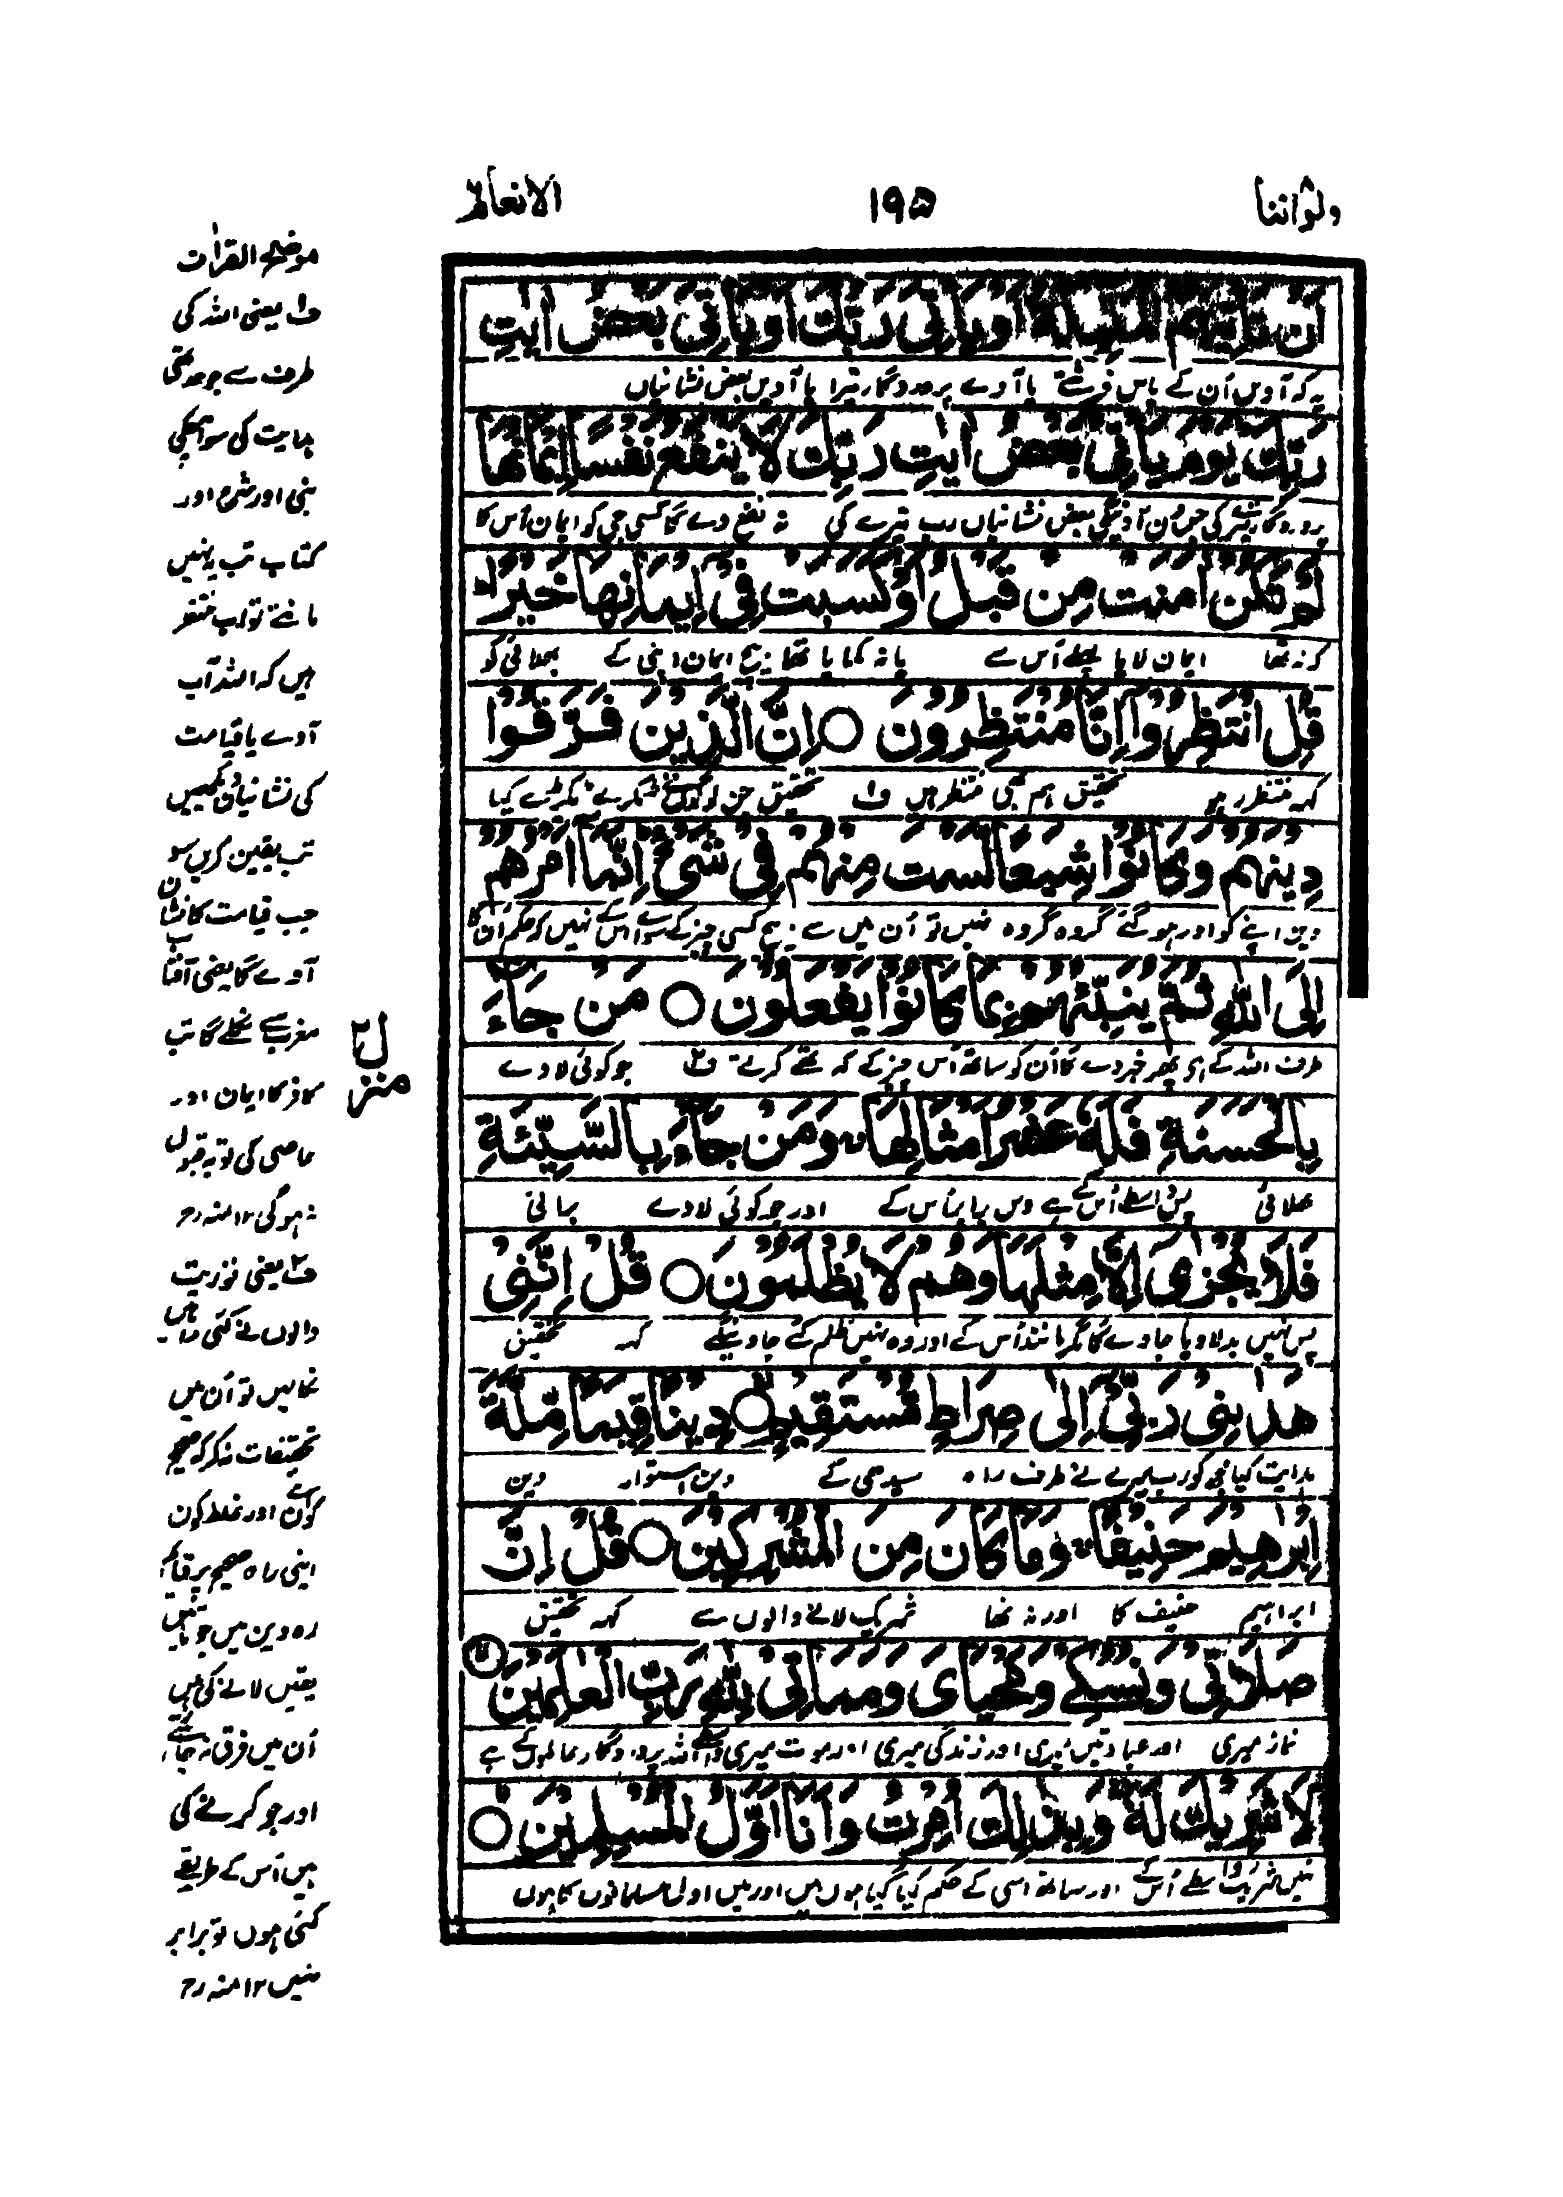 ولواننا ۱۹۵ الانعام
اَنْ تَاْتِيَهُمُ الْمَلٰٓئِكَةُ اَوْ يَاْتِيَ رَبُّكَ اَوْ يَاْتِيَ بَعْضُ اٰيٰتِ
یہ کہ آویں اُن کے پاس فرشتے یا آوے پروردگار تیرا یا آویں بعض نشانیاں
رَبِّكَ يَوْمَ يَاْتِيْ بَعْضُ اٰيٰتِ رَبِّكَ لَا يَنْفَعُ نَفْسًا اِيْمَانُهَا
پروردگار تیرے کی جس دن آوینگی بعض نشانیاں رب تیرے کی نہ نفع دے گا کسی جی کو ایمان اُس کا
لَمْ تَكُنْ اٰمَنَتْ مِنْ قَبْلُ اَوْ كَسَبَتْ فِيْٓ اِيْمَانِهَا خَيْرًا
کہ نہ تھا ایمان لایا پہلے اُس سے یا نہ کمایا تھا بیچ ایمان اپنی کے بھلائی کو
قُلِ انْتَظِرُوْٓا اِنَّا مُنْتَظِرُوْنَ ○ اِنَّ الَّذِيْنَ فَرَّقُوْا
کہہ منتظر رہو تحقیق ہم بھی منتظر ہیں ف۱ تحقیق جن لوگوں نے ٹکرے ٹکرے کیا
دِيْنَهُمْ وَكَانُوْا شِيَعًا لَّسْتَ مِنْهُمْ فِيْ شَيْءٍ اِنَّمَآ اَمْرُهُمْ
دین اپنے کو اور ہو گئے گروہ گروہ نہیں تو اُن میں سے بیچ کسی چیز کے سوائے اس کے نہیں کہ حکم اُن کا
اِلَى اللّٰهِ ثُمَّ يُنَبِّئُهُمْ بِمَا كَانُوْا يَفْعَلُوْنَ ○ مَنْ جَآءَ
طرف اللہ کے ہی پھر خبر دے گا اُن کو ساتھ اُس چیز کے کہ تھے کرتے ف۲ جو کوئی لاوے
بِالْحَسَنَةِ فَلَهٗ عَشْرُ اَمْثَالِهَا وَمَنْ جَآءَ بِالسَّيِّئَةِ
بھلائی پس واسطے اُس کے ہے دس برابر اُس کے اور جو کوئی لاوے برائی
فَلَا يُجْزٰٓى اِلَّا مِثْلَهَا وَهُمْ لَا يُظْلَمُوْنَ ○ قُلْ اِنَّنِيْ
پس نہیں بدلا دیا جاوے گا مگر مانند اُس کے اور وہ نہیں ظلم کئے جاوینگے کہہ تحقیق
هَدٰىنِيْ رَبِّيْٓ اِلٰى صِرَاطٍ مُّسْتَقِيْمٍ ○ دِيْنًا قِيَمًا مِّلَّةَ
ہدایت کیا مجھ کو رب میرے نے طرف راہ سیدھی کے دین استوار دین
اِبْرٰهِيْمَ حَنِيْفًا وَمَا كَانَ مِنَ الْمُشْرِكِيْنَ ○ قُلْ اِنَّ
ابراہیم حنیف کا اور نہ تھا شریک لانے والوں سے کہہ تحقیق
صَلَاتِيْ وَنُسُكِيْ وَمَحْيَايَ وَمَمَاتِيْ لِلّٰهِ رَبِّ الْعٰلَمِيْنَ لا
نماز میری اور عبادتیں میری اور زندگی میری اور موت میری واسطے اللہ پروردگار عالموں کے ہے
لَا شَرِيْكَ لَهٗ وَبِذٰلِكَ اُمِرْتُ وَاَنَا اَوَّلُ الْمُسْلِمِيْنَ ○
نہیں شریک واسطے اُس کے اور ساتھ اسی کے حکم کیا گیا ہوں میں اور میں اول مسلمانوں کا ہوں
موضح القرآن
ف۱ یعنی اللہ کی
طرف سے جو حد تھی
ہدایت کی سو آچکی
نبی اور شرع اور
کتاب تب یہ نہیں
مانتے تو اب منتظر
ہیں کہ اللہ آپ
آوے یا قیامت
کی نشانیاں دیکھیں
تب یقین کریں سو
جب قیامت کا نشان
آوے گا یعنی آفتاب
مغرب سے نکلے گا تب
کافر کا ایمان اور
عاصی کی توبہ قبول
نہ ہو گی ۱۲ منہ رح
ف۲ یعنی توریت
والوں نے کئی راہیں
نکالیں تو اُن میں
تحقیقات نہ کر کہ صحیح
کون ہے اور غلط کون
اپنی راہ صحیح پر قائم
رہ دین میں جو باتیں
یقین لانے کی ہیں
اُن میں فرق نہ چاہئے
اور جو کرنے کی
ہیں اُس کے طریقے
کئی ہوں تو برابر
نہیں ۱۲ منہ رح
منزل ۲